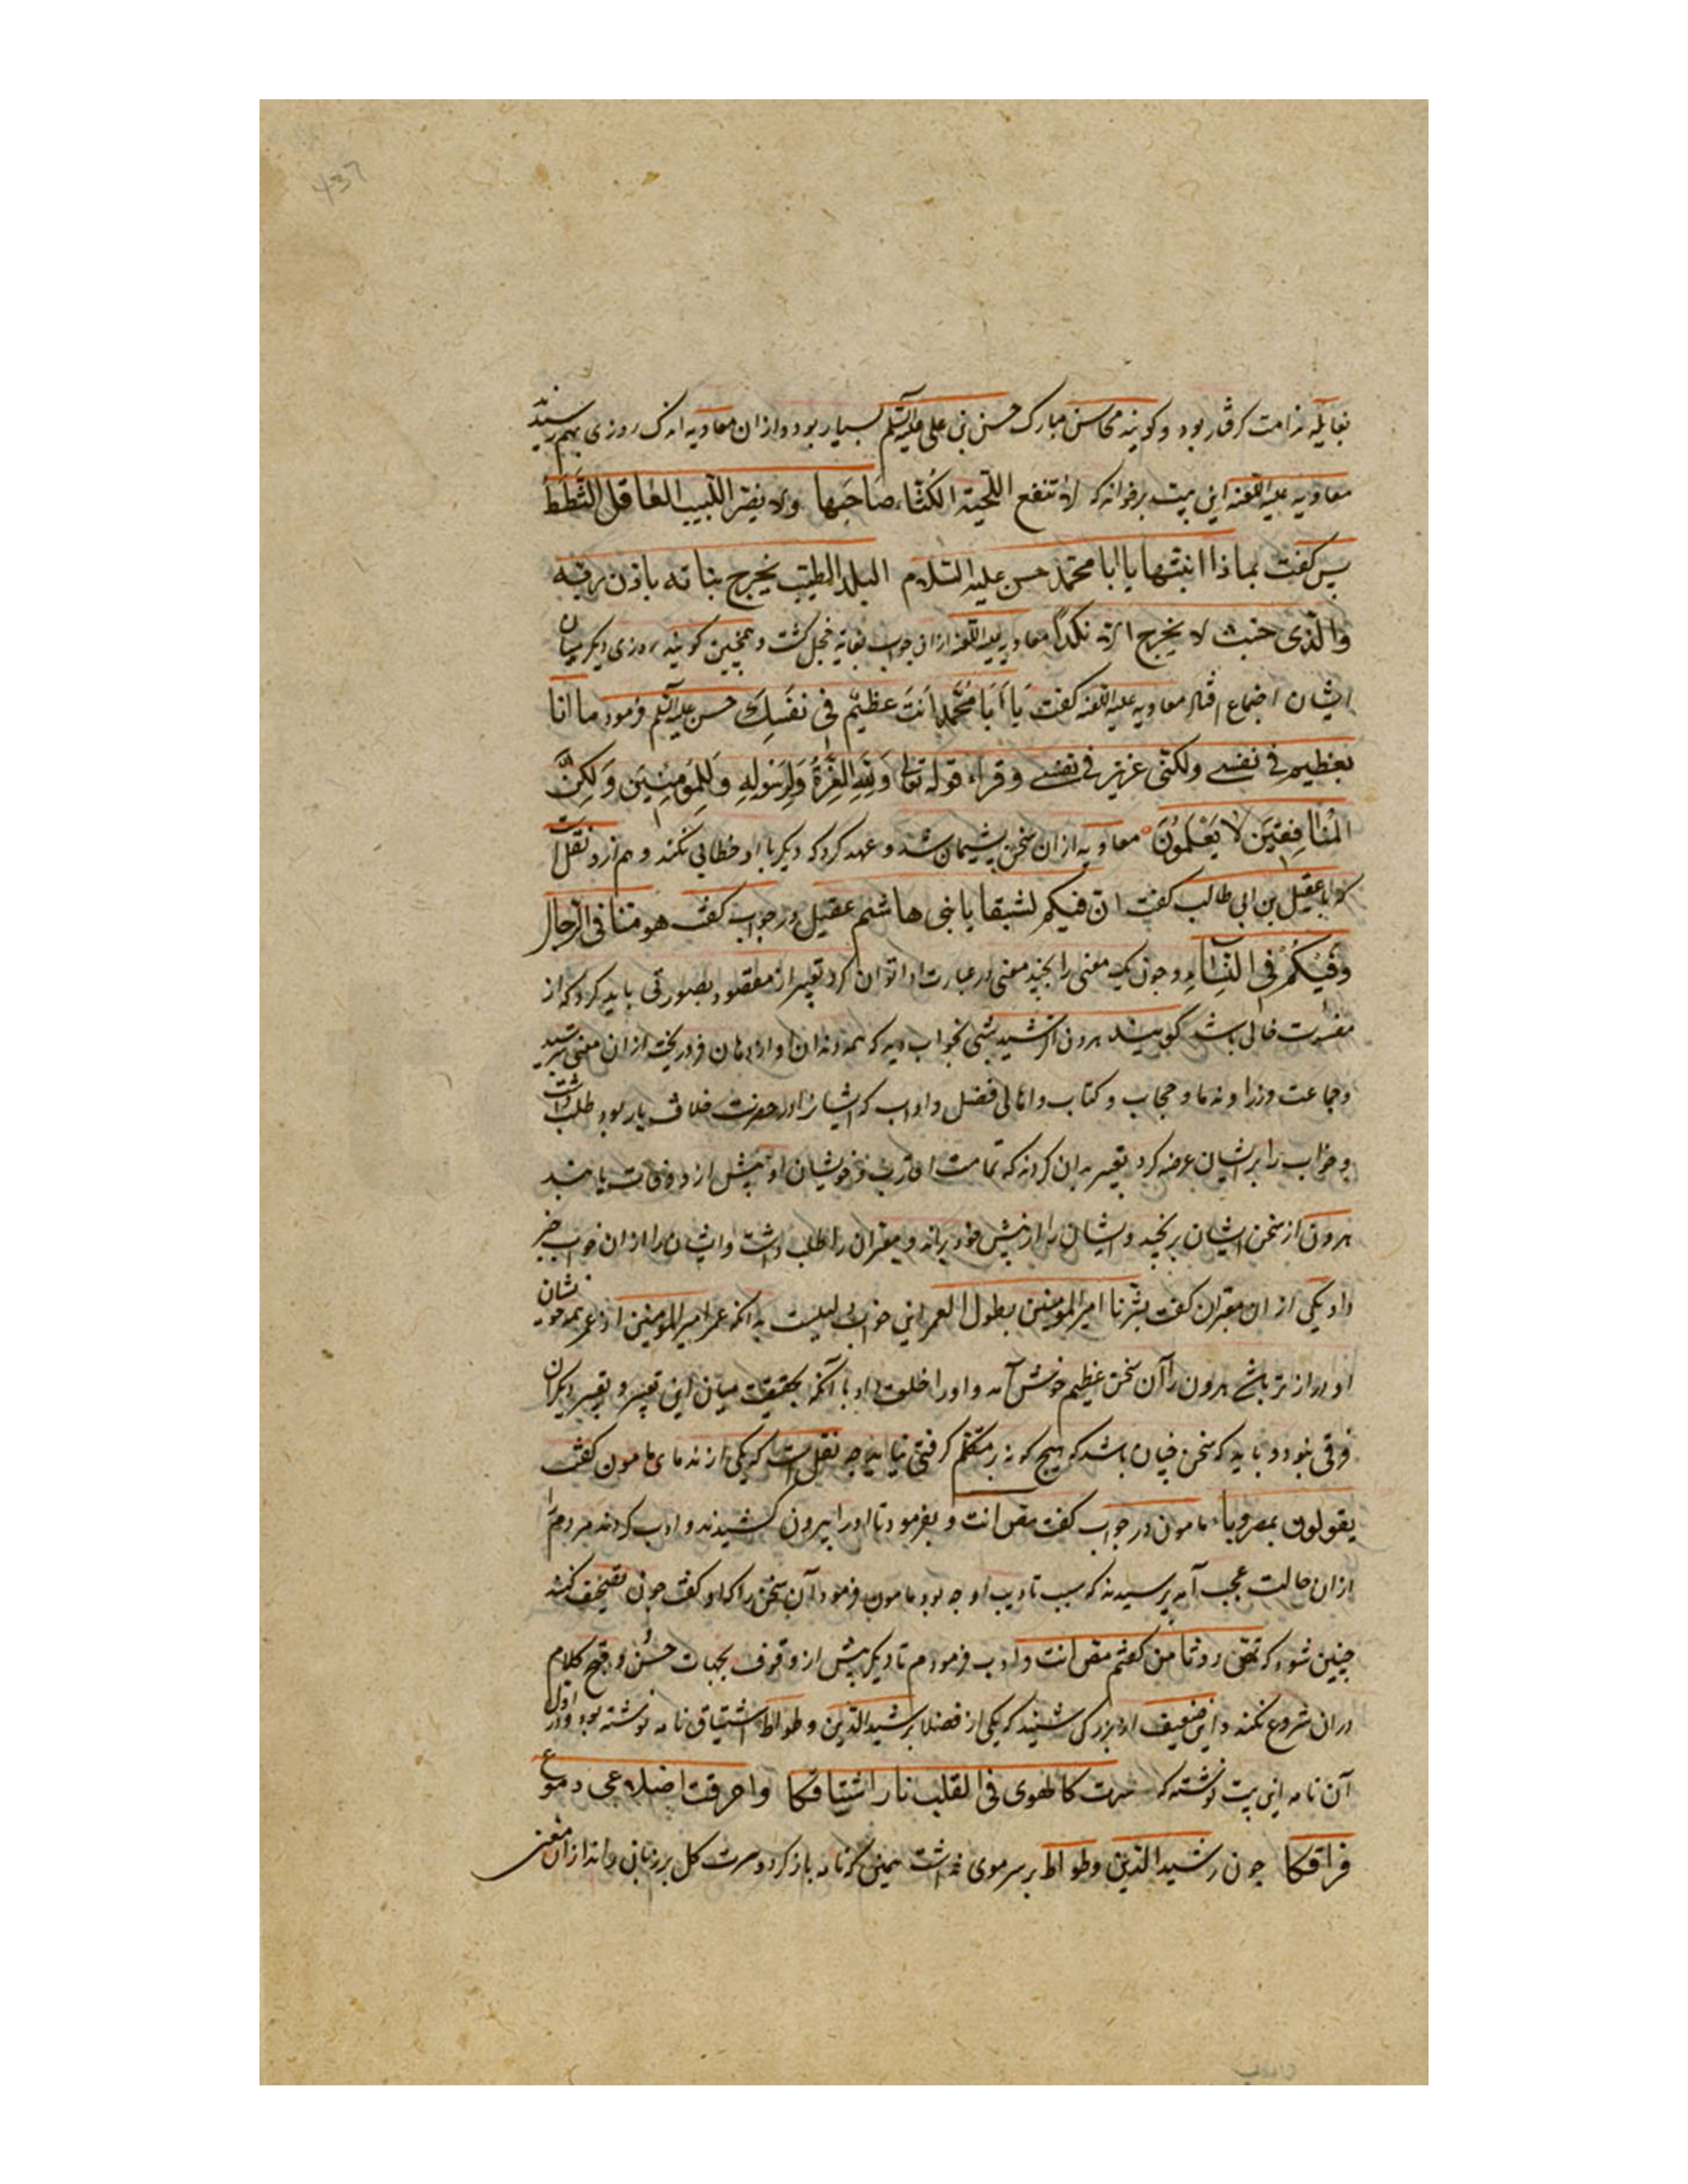 بغایله ندامت گرفتار بود و کویند محاسن مبارک حسن بن علی علیه السلم بسیار بود و از ان معاویه اندک روزی بهم رسیدند
معاویه علیه اللعنه این بیت برخواند که لا تنفع اللحیة الکثاء صاحبها ولا یضر اللبیب العاقل الثطط
پس کفت بماذا انبتها یا ابا محمد حسن علیه السلام البلد الطیب یخرج بناته باذن ربه
والذی خبث لا یخرج الا نکدا معاویه علیه اللعنه ازان جواب بغایة خجل کشت و همچنین کویند روزی دیکر میان
ایشان اجتماع افتاد معاویه علیه اللعنه کفت یَا اَبَا مُحَمَّد اَنتَ عظیْم فی نفَسِكَ حسن علیه السلم فرمود ما انا
بعظیم فی نفسی ولکنی عزیز فی نفسی وقراء قوله تعالی وَلِلّهِ العِزَّةُ وَلِرَسُولِهِ وَلِلمُومِنِینَ وَلکِنَّ
المُنَافِقینَ لا یَعْلَمُونَ معاویه ازان سخن پشیمان شد و عهد کرد که دیکر با او خطابی نکند و هم ازو نقلست
که با عقیل بن ابی طالب کفت ان فیکم لشبقا یا بنی هاشم عقیل در جواب کفت هو منا فی الرجال
وَفیکُمْ فی النِّسَاءِ و چون یک معنی را بچند معنی در عبارت ادا توان کرد تعبیر از مقصود بصورتی باید کرد که از
مضرت خالی باشد کویند هرون الرشید شبی بخواب دید که همه دندان او از دهان فرو ریخت ازان معنی بترسید
و جماعت وزرا و ندما و حجاب و کتاب و اهالی فضل و ادب که ایشانرا در حضرت خلافت بار بود طلب داشت
و خواب را بر ایشان عرضه کرد تعبیر بدان کردند که تمامت اقارب و خویشان او پیش از و وفات یابند
هرون از سخن ایشان برنجید و ایشان را از پیش خود براند و معبران را طلب داشت و ایشان را ازان خواب خبر
داد یکی از ان معبران کفت بشرنا امیر المومنین بطول العمر این خواب دلیلست بدانکه عمر امیر المومنین از عمر همه خویشان
او دراز تر باشد هرون را آن سخن عظیم خوش آمد و او را خلعت داد با آنکه بحقیقت میان این تعبیر و تعبیر دیکران
فرقی نبود و باید که سخن چنان باشد که هیچ کونه بر متکلم کرفتی نیاید چه نقلست که یکی از ندمای مامون کفت
یقولون بمصر وباء مامون در جواب کفت مص انت و بفرمود تا او را بیرون کشیدند و ادب کردند مردم را
ازان حالت عجب آمد پرسیدند که سبب تادیب او چه بود مامون فرمود آن سخن را که او کفت چون تصحیف کنند
چنین شود که تمص روثا من کفتم مص انت و ادب فرمودم تا دیکر پیش از وقوف بجهات حسُن و قبح کلام
دران شروع نکند و این ضعیف از بزرکی شنید که یکی از فضلا برشیدالدین وطواط اشتیاق نامه نوشته بود و در اول
آن نامه این بیت نوشته که سرت کالهوی فی القلب نار اشتیاقکا واحرقت اضلاعی دموع
فراقکا چون رشیدالدین وطواط بر سر موی نداشت همین که نامه باز کرد و سرت کل بر زبان راند ازان معنی